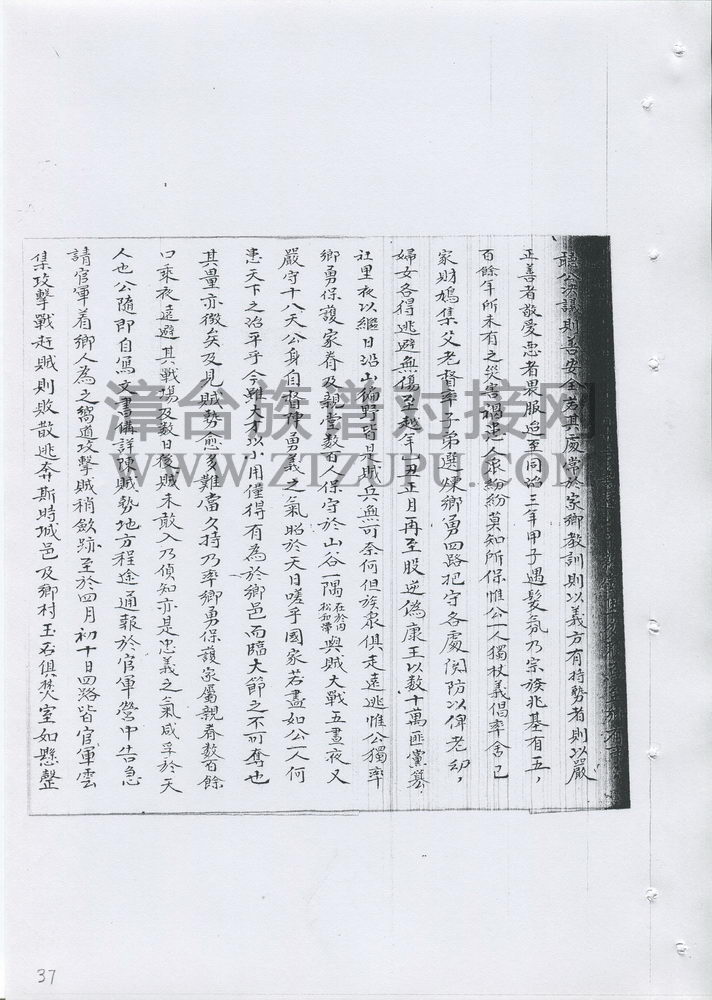 公決議則善安全若其處常於家鄉教訓則以義方有持勢者則以嚴
正善者敬愛惡者畏服迨至同治三年甲子遇髮氛乃宗族兆基有五，
百餘年所未有之災害禍患人衆紛紛莫知所保惟公一人獨杖義倡率舍己
家財鳩集父老督率子弟選煉鄉勇四路把守各處関防以俾老幼，
婦女各得逃避無傷至越年乙丑正月再至股逆偽康王以数十萬匪黨
社里夜以繼日沿山徧野皆是賊兵無可奈何但族衆俱走遠逃惟公獨率
鄉勇保護家眷及親堂数百人保守於山谷一隅在於内松和滯與賊大戰五晝夜又
嚴守十八天公身自督陣勇義之氣昭於天日嗟乎國家若盡如公一人何
患天下之治平乎今雖大才以小用僅得有為於鄉邑而臨大節之不可奪也
其量亦微矣及見賊勢愈多難當久持乃率鄉勇保護家屬親眷数百餘
口乘夜遠避其戰場及数日後賊未敢入乃偵知亦是忠義之氣感孚於天
人也公隨即自寫文書備詳陳賊勢地方程途通報於官軍營中告急
請官軍着鄉人為之嚮道攻擊賊稍斂跡至於四月初十日四路皆官軍雲
集攻擊戰赶賊則敗散逃奔斯時城邑及鄉村玉石俱焚室如懸罄
漳台族谱对接网
WWW.ZTZUPU.COM
37